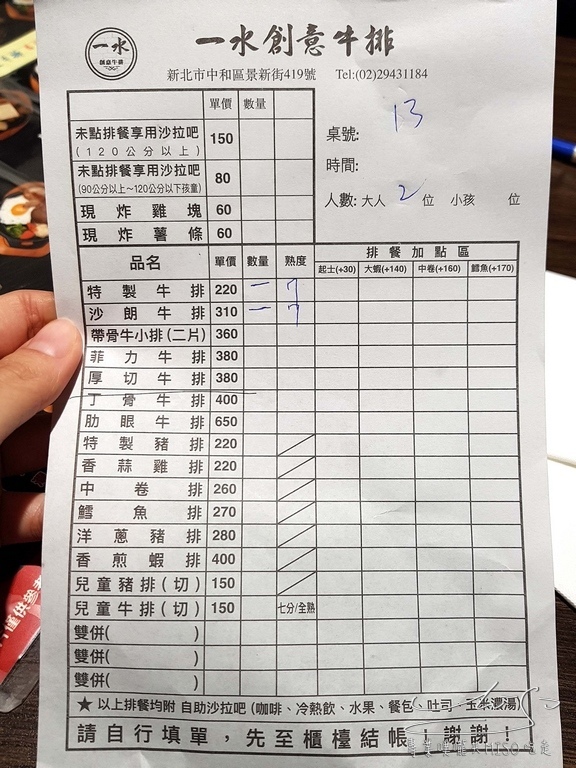 一水
創意牛排
一水創意牛排
新北市中和區景新街419號 Tel:(02)29431184
單價 數量
未點排餐享用沙拉吧
(120公分以上) 150
未點排餐享用沙拉吧
(90公分以上～120公分以下孩童) 80
現炸雞塊 60
現炸薯條 60
桌號: 13
時間:
人數: 大人 2 位 小孩 位
品名 單價 數量 熟度 排餐加點區
起士(+30) 大蝦(+140) 中卷(+160) 鱈魚(+170)
特製牛排 220 一 7
沙朗牛排 310 一 7
帶骨牛小排(二片) 360
菲力牛排 380
厚切牛排 380
丁骨牛排 400
肋眼牛排 650
特製豬排 220
香蒜雞排 220
中卷排 260
鱈魚排 270
洋蔥豬排 280
香煎蝦排 400
兒童豬排(切) 150
兒童牛排(切) 150 七分/全熟
雙併( )
雙併( )
雙併( )
★ 以上排餐均附 自助沙拉吧 (咖啡、冷熱飲、水果、餐包、吐司、玉米濃湯)
請自行填單，先至櫃檯結帳！謝謝！